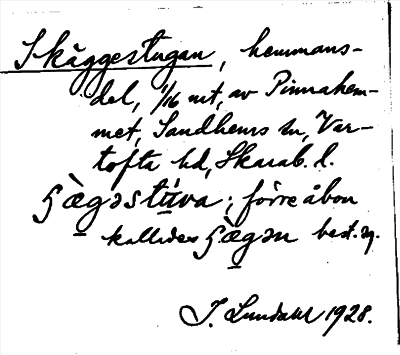 Skäggestugan, hemmans-
del, 1/16 mt, av Pinnahem-
met, Sandhems sn, Var-
tofta hd, Skarab. l.
ʃæ̀gəstúva; förre åbon
kallades ʃæ̀gən best. sg.
J. Lundahl 1928.